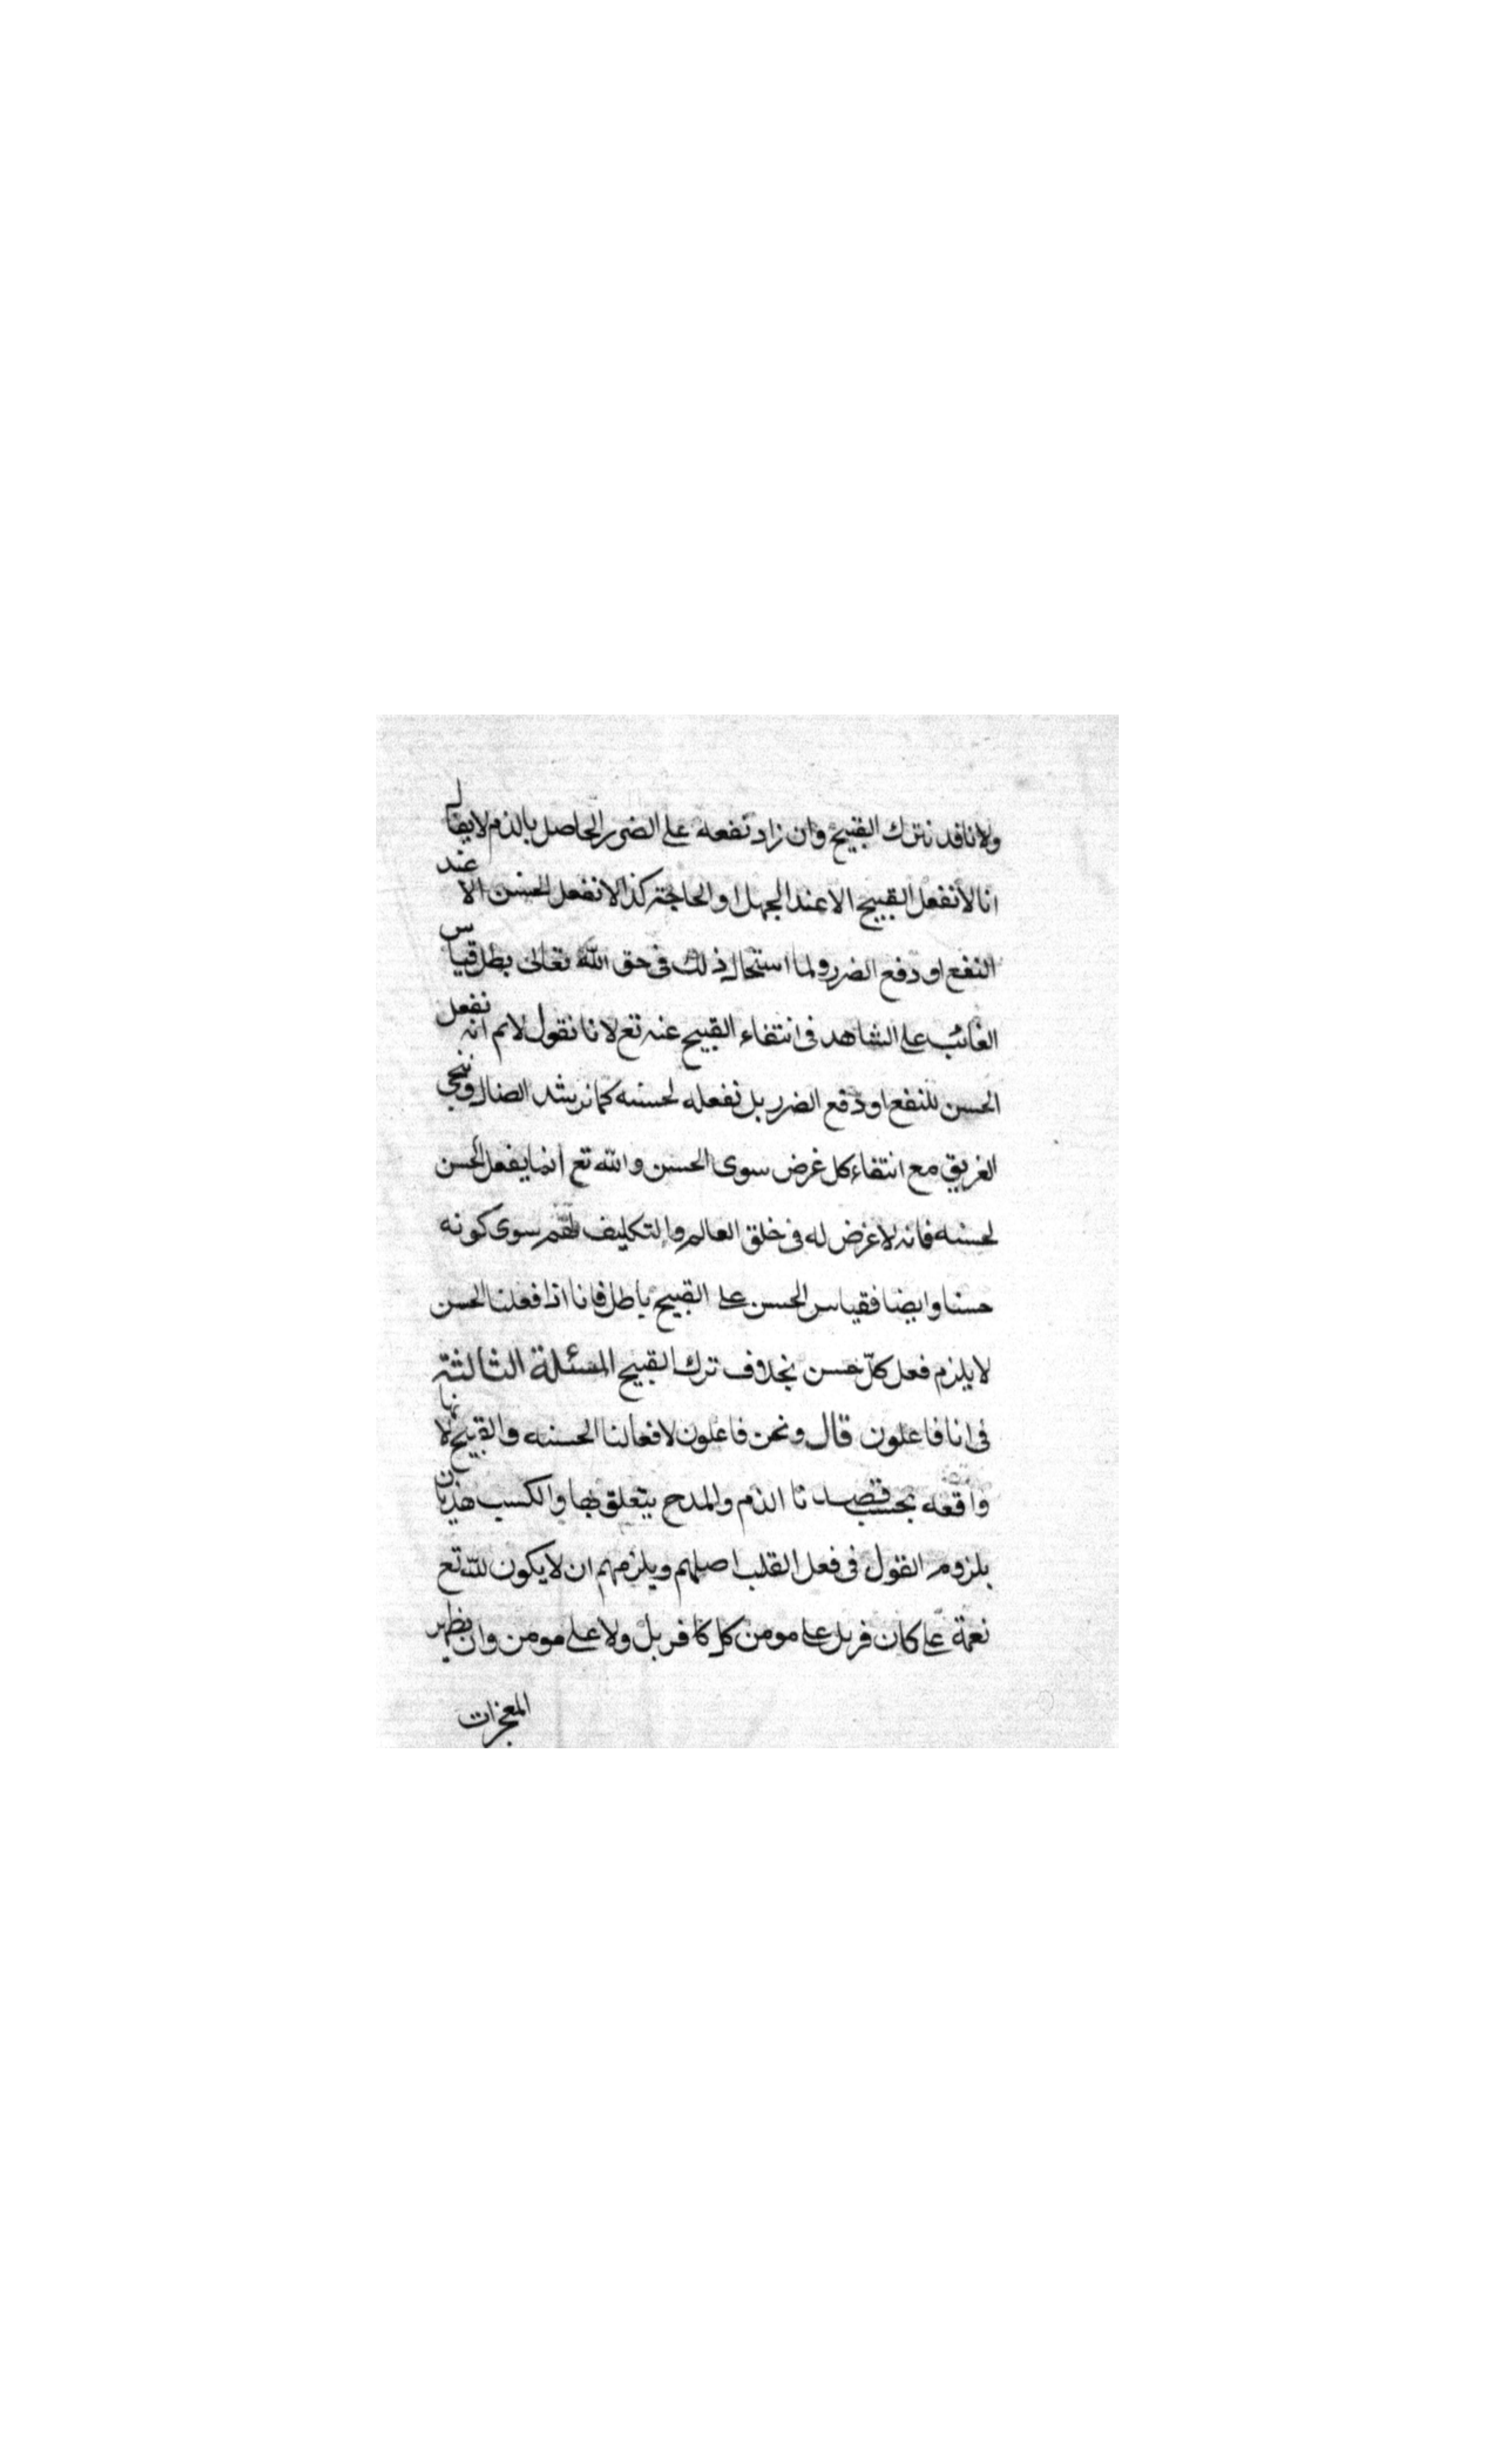 ولانا قد نترك القبيح وان زاد نفعه على الضرر الحاصل بالذم لا يقال
انا لا نفعل القبيح الا عند الجهل او الحاجة كذا لا نفعل الحسن الا عند
النفع او دفع الضرر ولما استحال ذلك فى حق الله تعالى بطل قياس
الغائب على الشاهد فى انتفاء القبيح عنه تع لانا نقول لانم انه نفعل
الحسن للنفع او دفع الضرر بل نفعله لحسنه كما نرشد الضال وننجي
الغريق مع انتفاء كل غرض سوى الحسن والله تع انما يفعل الحسن
لحسنه فانه لا غرض له فى خلق العالم والتكليف لهم سوى كونه
حسنا وايضا فقياس الحسن على القبيح باطل فانا اذا فعلنا الحسن
لا يلزم فعل كل حسن بخلاف ترك القبيح المسئلة الثالثة
فى انا فاعلون قال ونحن فاعلون لافعالنا الحسنه والقبيح لانها
واقعه بحسب قصدنا الذم والمدح يتعلق بها والكسب هذيان
بلزوم القول فى فعل القلب اصلهم ويلزمهم ان لا يكون لله تع
نعمة على كافر بل على مومن كل كافر بل ولا على مومن وان يظهر
المعجزات